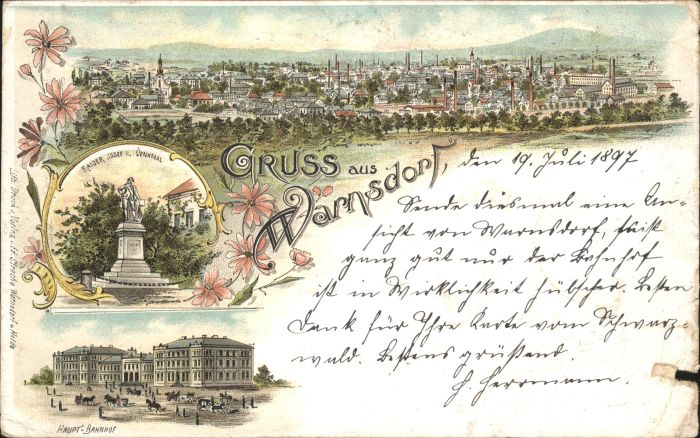 KAISER JOSEF II. DENKMAL
GRUSS AUS
Warnsdorf, den 19. Juli 1897
Sende diesmal eine An-
sicht von Warnsdorf, sie ist
ganz gut nur der Bahnhof
ist in Wirklichkeit hübscher. Besten
Dank für Ihre Karte vom Schwarz-
wald. Bestens grüßend
H Herrmann.
HAUPT-BAHNHOF